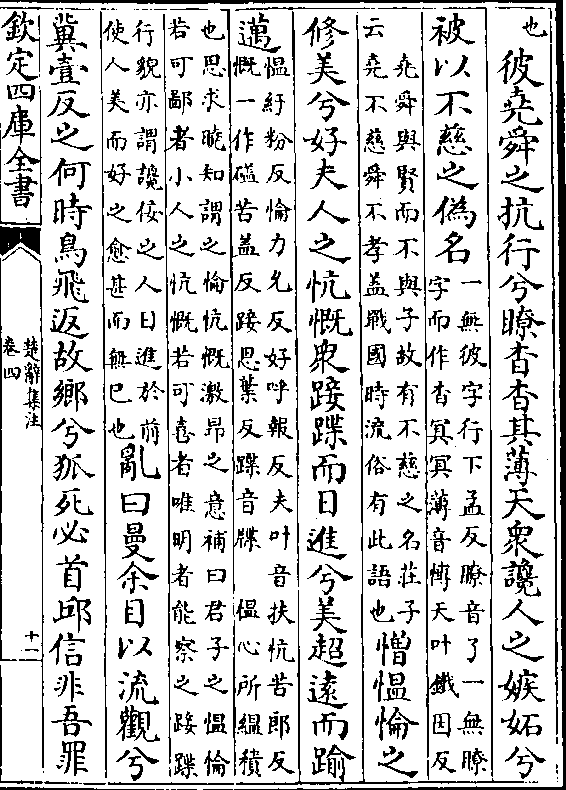 也彼堯舜之抗行兮瞭杳杳其薄天衆讒人之嫉妬兮
被以不慈之偽名
一無彼字行下孟反瞭音了一無瞭
字而作杳冥冥薄音博天叶鐵因反
堯舜與賢而不與子故有不慈之名莊子
云堯不慈舜不孝蓋戰國時流俗有此語也
憎愠惀之
修美兮好夫人之忼慨衆踥蹀而日進兮美超遠而踰
邁
愠紆粉反惀力允反好呼報反夫叶音扶忼苦郎反
慨一作磕苦蓋反踥思葉反蹀音牒 愠心所緼積
也思求曉知謂之惀忼慨激昂之意補曰君子之愠惀
若可鄙者小人之忼慨若可喜者唯明者能察之踥蹀
行貌亦謂讒佞之人日進於前
使人美而好之愈甚而無已也
亂曰曼余目以流觀兮
冀壹反之何時鳥飛返故鄉兮狐死必首邱信非吾罪
欽定四庫全書
楚辭集注
卷四
十一